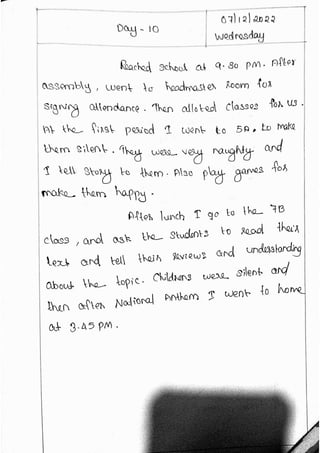 Day - 10
07/12/2022
Wednesday
Reached school at 9.30 PM. After
assembly, went to headmaster Room for
signing attendance. Then alloted classes for us.
At the first period I went to 5A, to make
them silent. They were very naughty and
I tell story to them. Also play games for
make them happy.
After lunch I go to the 7B
class, and ask the students to read their
text and tell their reviews and understanding
about the topic. Childrens were silent and
then after National Anthem I went to home
at 3.45 PM.